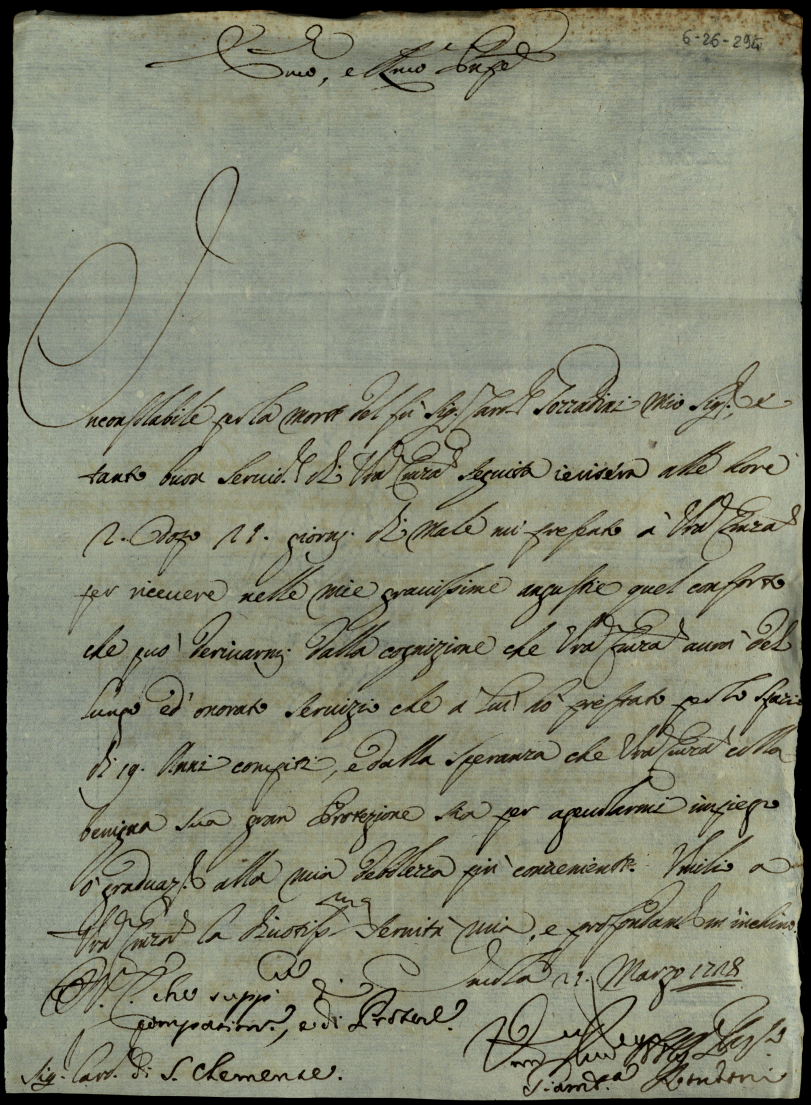 6-26-295
Emo, e Rmo Prnpe
Inconsolabile per la morte del fù Sig.r Card.l Corradini mio Sig.re, e
tanto buon Servid.e di Vra Emza seguita ieri sera alle hore
2. dopo 21. giorni di male mi presento à Vra Emza
per ricevere nelle mie gravissime angustie quel conforto
che può derivarmi dalla cognizione che Vra Emza aurà del
lungo ed onorato servizio che à lui hò prestato per lo spazio
di 19. Anni compiti, e dalla speranza che Vra Emza colla
benigna sua gran Protezione sia per agevolarmi impiego
ò graduaz.e alla mia debolezza più conveniente. Umilio a
Vra Emza la divotiss.ma servitù mia, e profondam.e m'inchino.
21. Marzo 1718
che suppl.
compatione, e di Protez.e
Sig. Card. di S. Clemente.